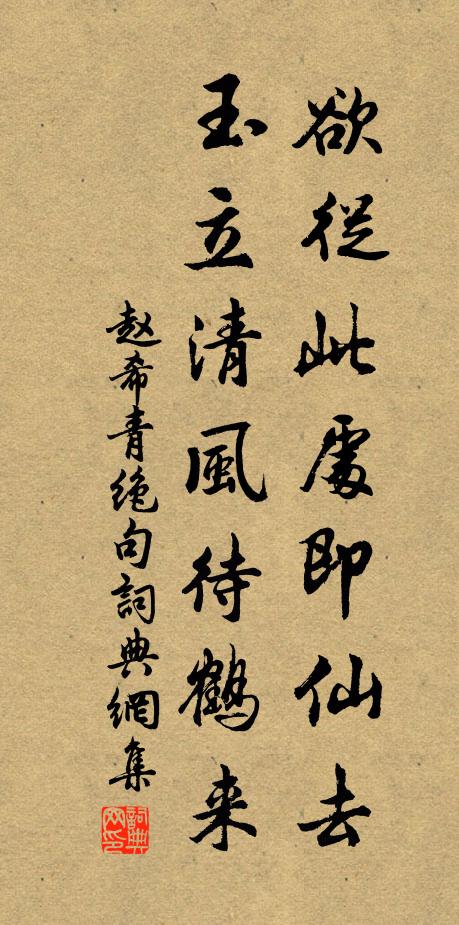 欲從此處即仙去
玉立清風待鶴来
赵希青绝句詞典網集
詞典網印